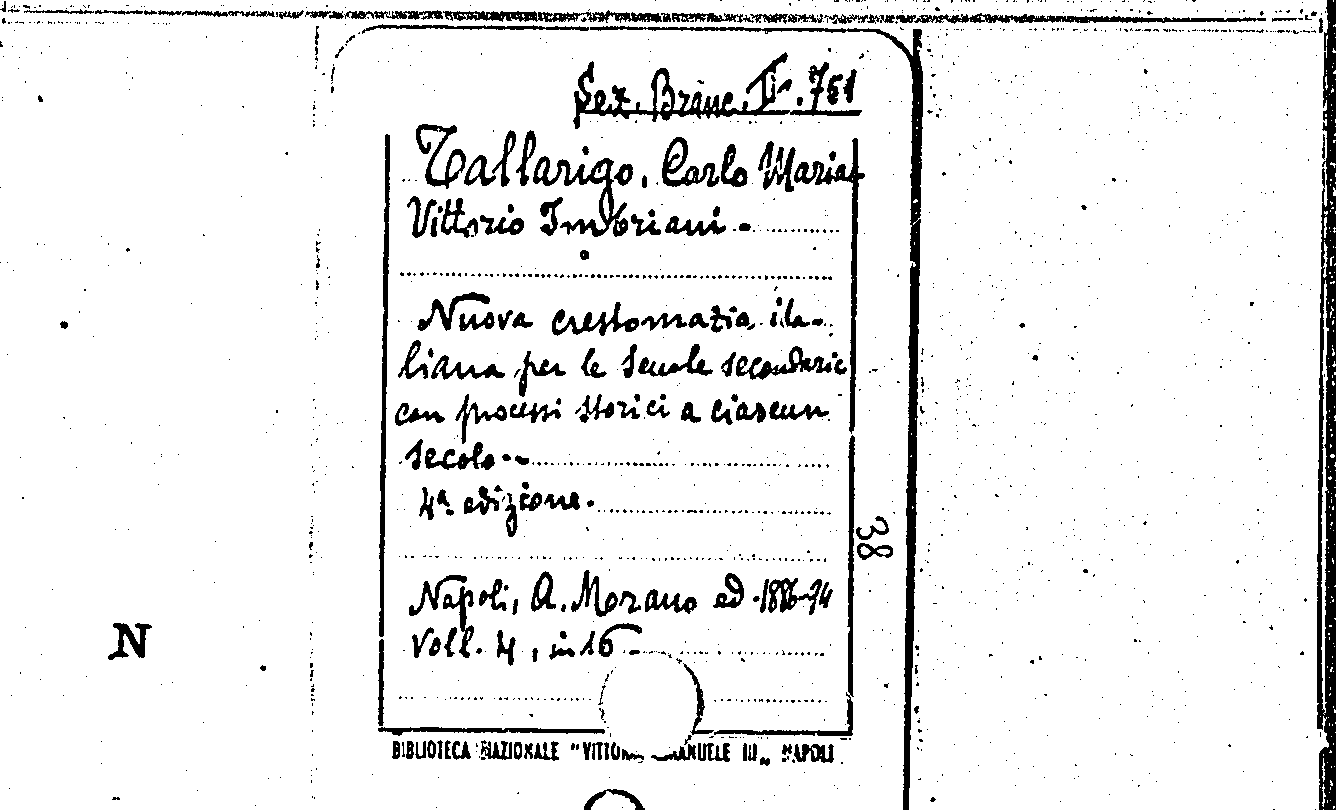 Sez. Branc. II. 751
Tallarigo, Carlo Maria e
Vittorio Imbriani -
Nuova crestomazia ita-
liana per le scuole secondarie
con processi storici a ciascun
secolo. -
4ª edizione.
Napoli, A. Morano ed. 1886-94
Voll. 4, in 16 -
38
N
BIBLIOTECA NAZIONALE "VITTORIO EMANUELE III„ NAPOLI